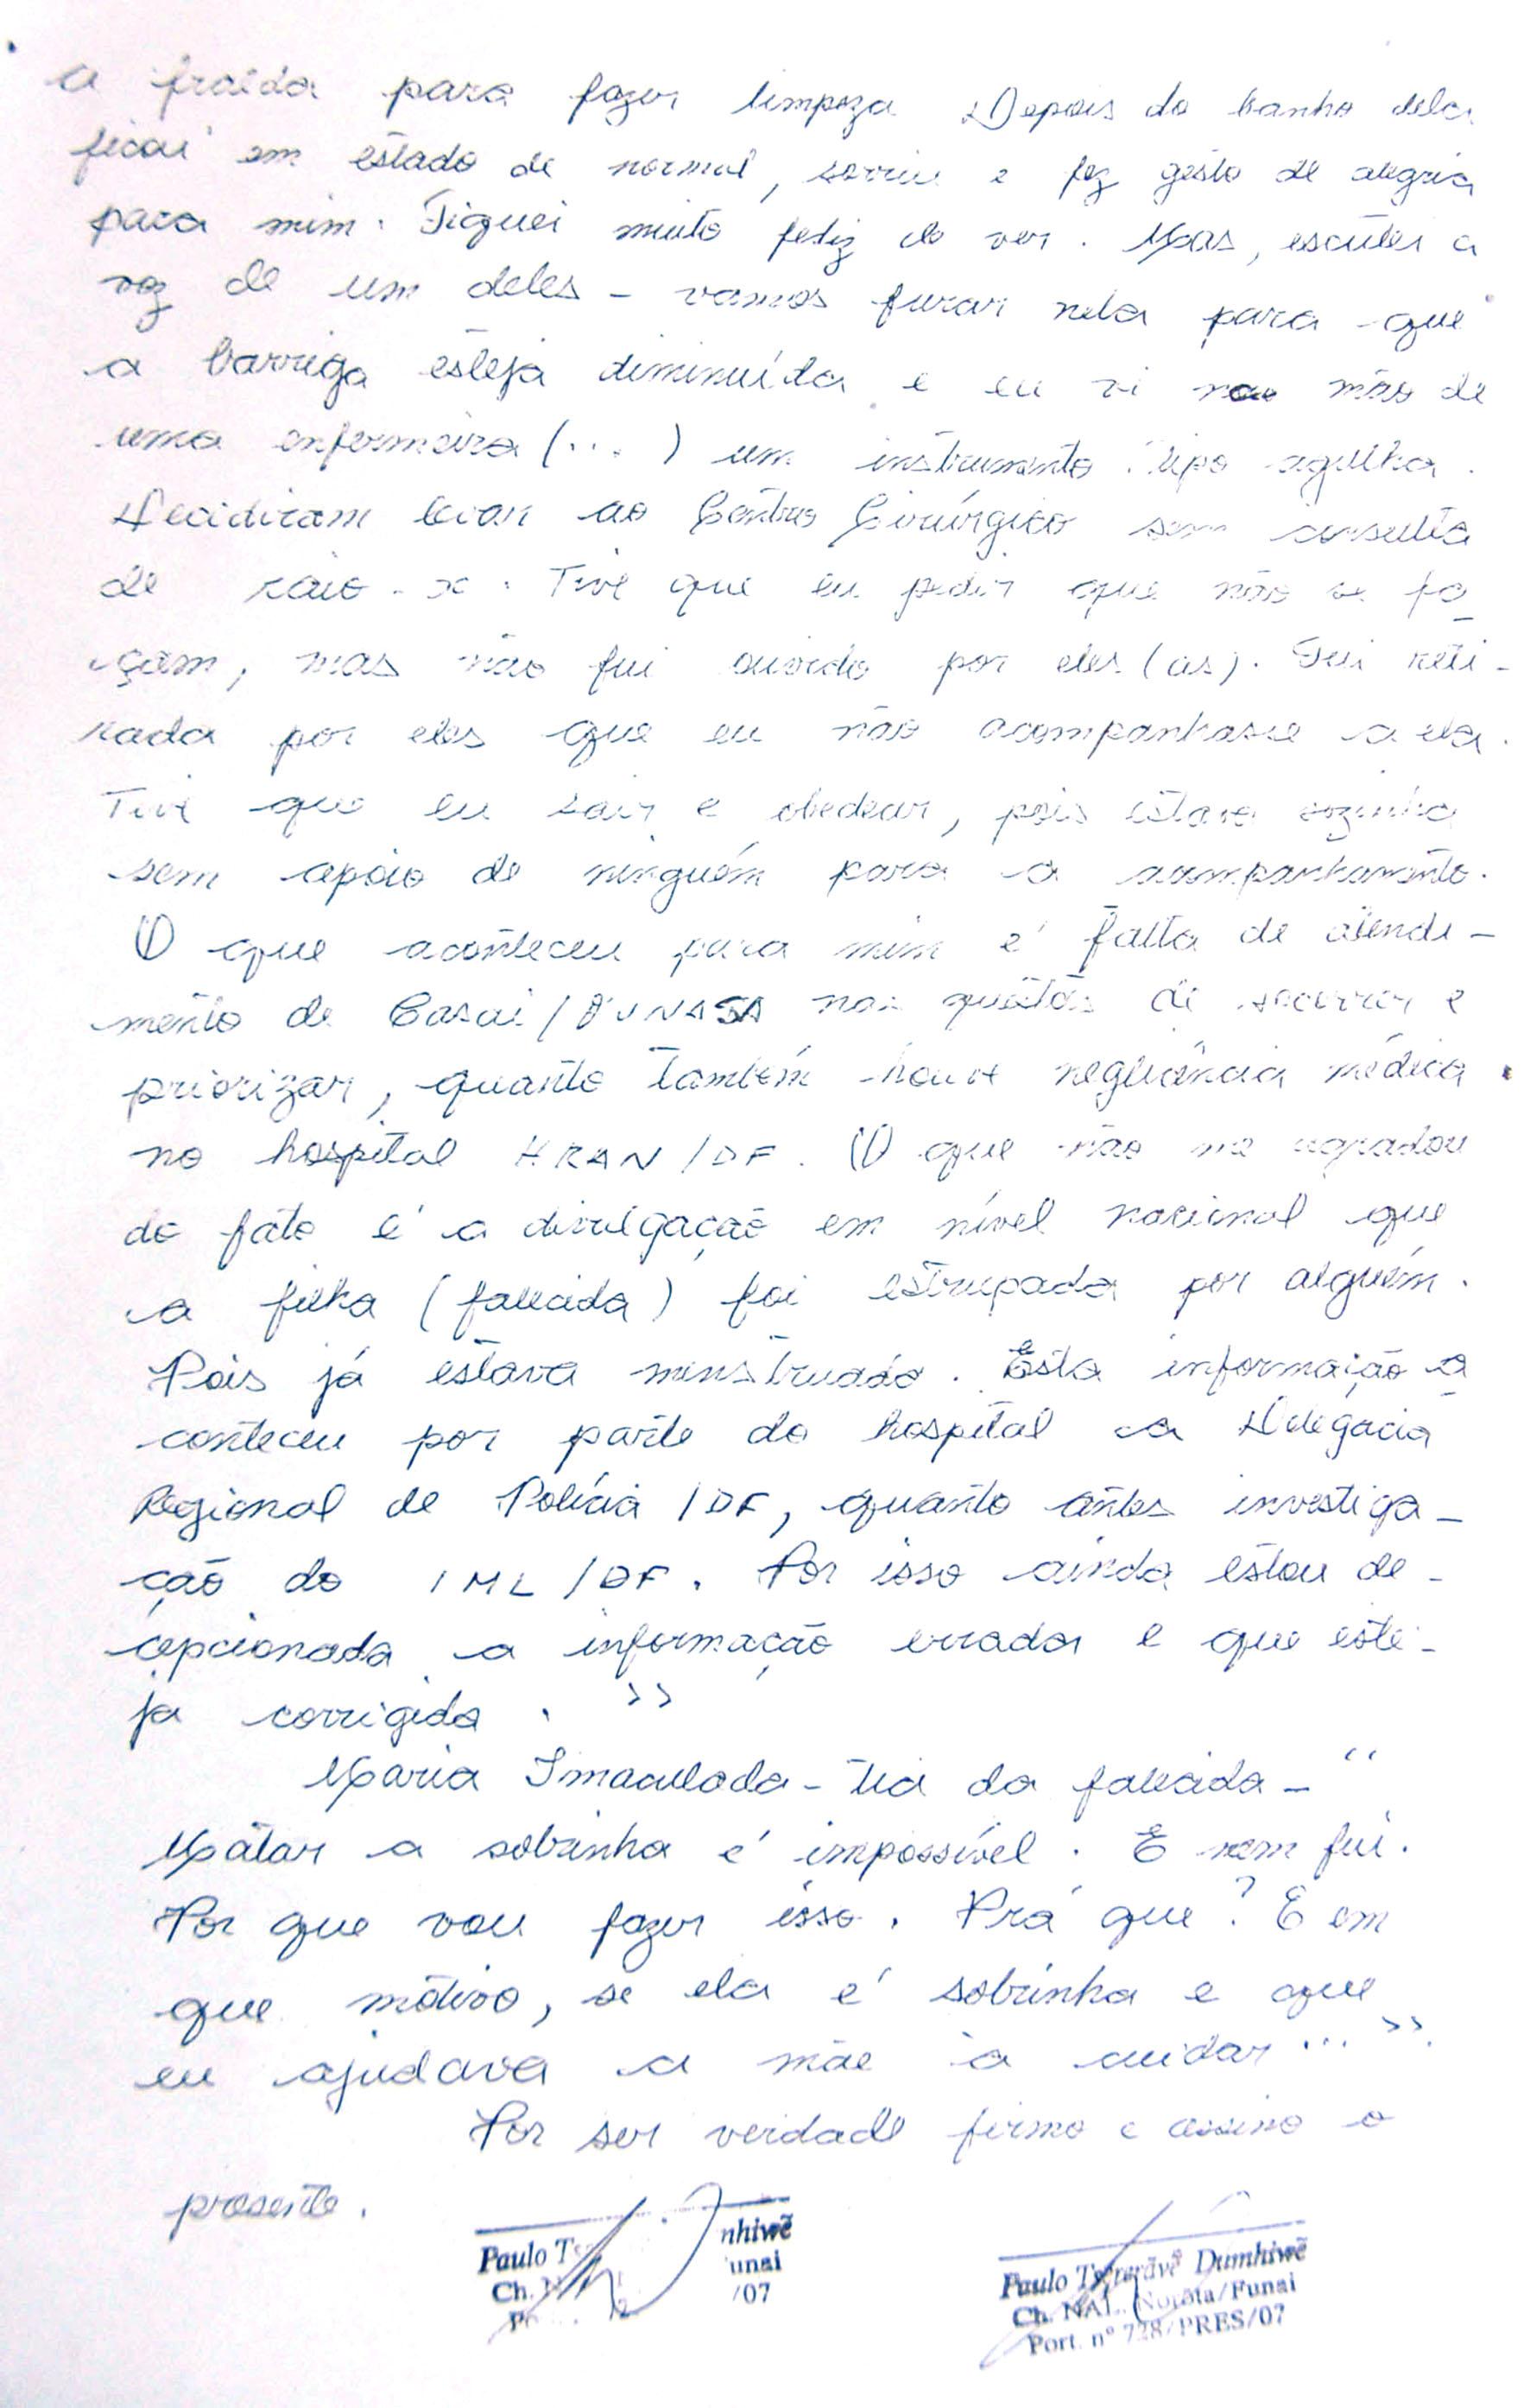 a fralda para fazer limpeza Depois do banho dela
ficou em estado de normal, sorriu e fez gesto de alegria
para mim. Fiquei muito feliz de ver. Mas, escutei a
voz de um deles - vamos furar nela para que
a barriga esteja diminuída e eu vi na mão de
uma enfermeira (...) um instrumento tipo agulha.
Decidiram levar ao Centro Cirúrgico sem consulta
de raio-x. Tive que eu pedir que não se fa
çam, mas não fui ouvido por eles (as). Fui reti-
rada por eles que eu não acompanhasse a ela.
Tive que eu sair e obedecer, pois estava sozinha
sem apoio de ninguém para o acompanhamento.
O que aconteceu para mim é falta de atendi-
mento de Casai/FUNASA nas questão de socorrer e
priorizar, quanto também houve negligência médica
no hospital HRAN/DF. O que não me agradou
do fato é a divulgação em nível nacional que
a filha (falecida) foi estrupada por alguém.
Pois já estava menstruada. Esta informação a
conteceu por parte do hospital a Delegacia
Regional de Polícia /DF, quanto antes investiga-
ção do IML/DF. Por isso ainda estou de-
cepcionada a informação errada e que este-
ja corrigida. "
Maria Imaculada - tia da falecida - "
Matar a sobrinha é impossível. E nem fui.
Por que vou fazer isso. Prá que? E em
que motivo, se ela é sobrinha e que
eu ajudava a mãe a cuidar... ".
Por ser verdade firmo e assino o
presente.
Paulo nhiwẽ
Ch. unai
/07
Paulo Dumhiwẽ
Ch. NAL. /Funai
Port. nº 728/PRES/07